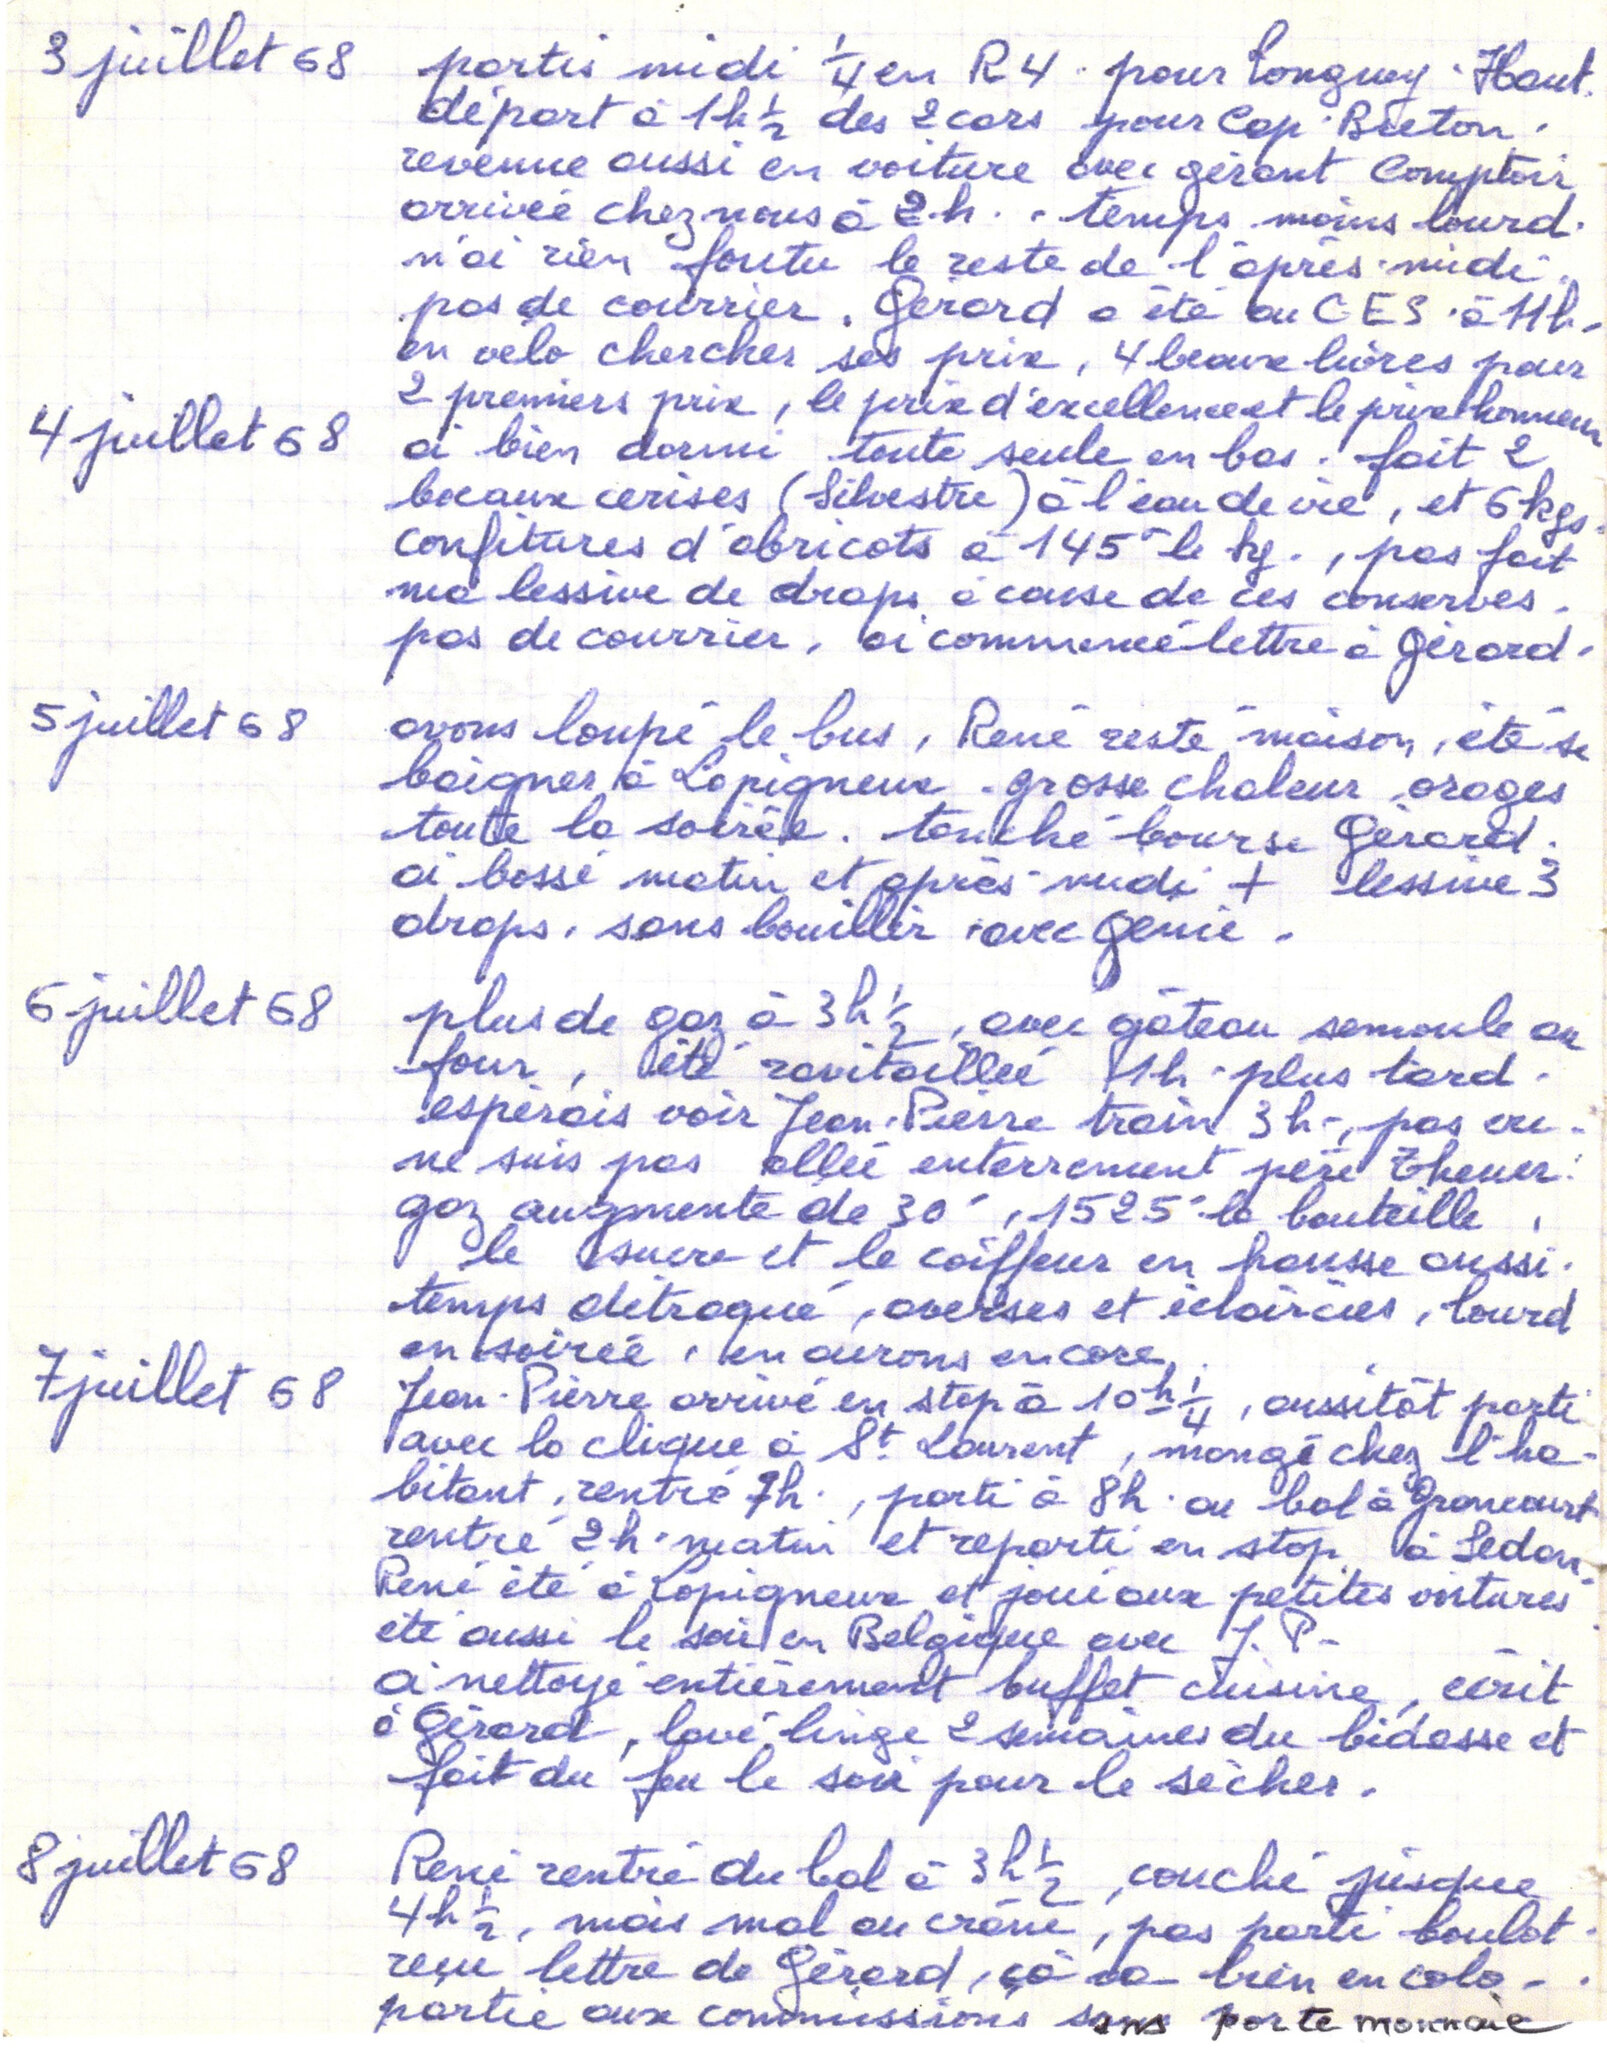 3 juillet 68 partis midi 1/4 en R4 pour Longwy-Haut.
départ à 1h 1/2 des 2 cars pour Cap-Breton.
revenue aussi en voiture avec gérant Comptoir
arrivée chez nous à 2h. . temps moins lourd.
n'ai rien foutu le reste de l'après-midi.
pas de courrier. Gérard a été au CES à 11h.
en vélo chercher ses prix, 4 beaux livres pour
2 premiers prix, le prix d'excellence et le prix honneur
4 juillet 68 ai bien dormi toute seule en bas. fait 2
bocaux cerises (Silvestre) à l'eau de vie, et 6 kgs
confitures d'abricots à 145 le kg., pas fait
ma lessive de draps à cause de ces conserves.
pas de courrier. ai commencé lettre à Gérard.
5 juillet 68 avons loupé le bus, René resté maison, été se
baigner à Lopigneux. grosse chaleur orages
toute la soirée. touché bourse Gérard.
ai bossé matin et après-midi + lessive 3
draps, sans bouillir avec Génie.
6 juillet 68 plus de gaz à 3h 1/2, avec gâteau semoule au
four, été ravitaillée 1h plus tard.
espérais voir Jean-Pierre train 3h-, pas vu.
ne suis pas allée enterrement père
gaz augmenté de 30, 1525 la bouteille,
le sucre et le coiffeur en hausse aussi.
temps détraqué, averses et éclaircies, lourd
en soirée, en aurons encore.
7 juillet 68 Jean-Pierre arrivé en stop à 10h 1/4, aussitôt parti
avec la clique à St Laurent, mangé chez l'ha-
bitant, rentré 7h., parti à 8h. au bal à
rentré 2h. matin et reparti en stop à Sedan.
René été à Lopigneux et joué aux petites voitures
été aussi le soir en Belgique avec J.P-
ai nettoyé entièrement buffet cuisine, écrit
à Gérard, lavé linge 2 semaines du bidasse et
fait du feu le soir pour le sécher.
8 juillet 68 René rentré du bal à 3h 1/2, couché jusque
4h 1/2, mais mal au crâne, pas parti boulot.
reçu lettre de Gérard, çà va bien en colo-.
partie aux commissions sans porte monnaie